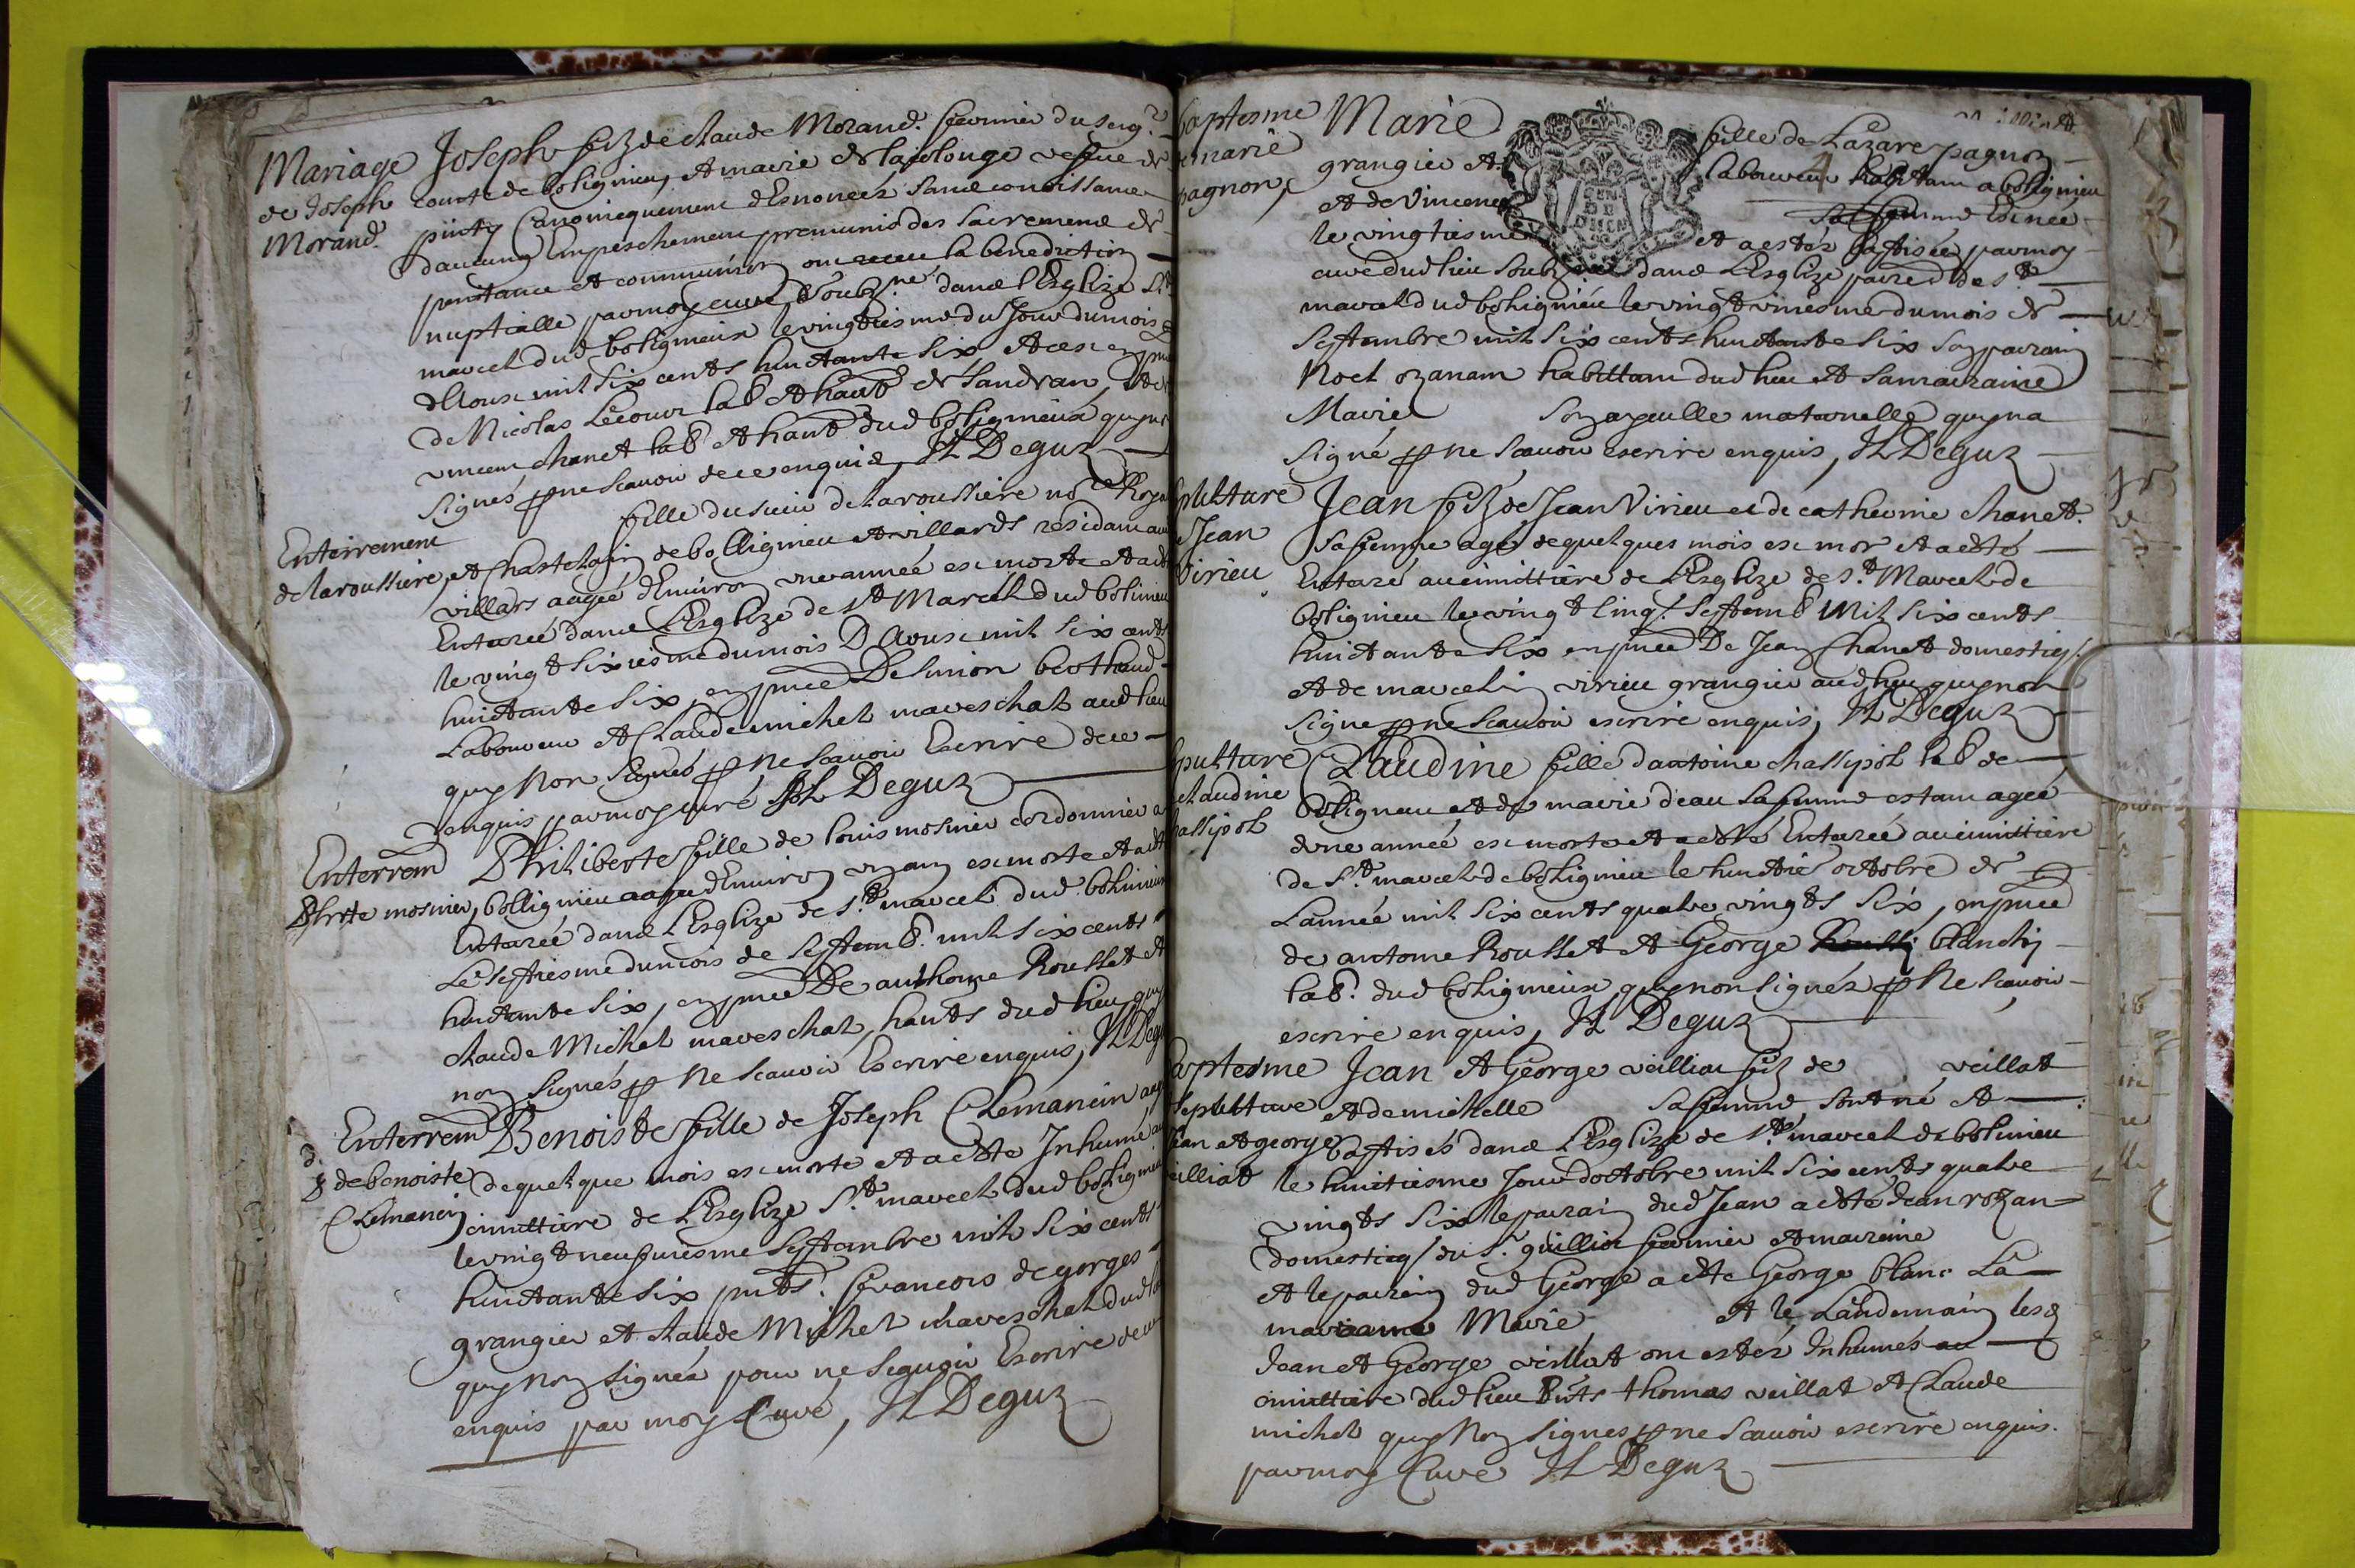 Mariage
de Joseph
Morand.
Joseph filz de claude Morand. fermier du seigr.
comte de bolignieu, et marie de lafelouge vefue de
piuty Canonicquement desnoncés sans connoissance
daucung Empeschement premunis des sacremens de
penitance et communion ont receu la benediction
nuptialle parmoy curé soubzne dans lEsglize St
marcel dud boligneux le vingtiesme du Jour du mois
dAoust mil six cents huictante six et ce en pnce
de Nicolas Lecour lab et hant de Sandran, et de
vincent chanet lab et hant dud boligneux quy nont
signés p ne scauoir de ce enquis, JL Deguz
Enterrement
de laroussiere,
fille du sieur de Laroussiere nore Royal
et Chastelain de bollignieu et villards residant au
villars aagée dEnuiron vne année est morte et a esté
Enterée dans LEsglize de St Marcel dud bolinieu
le vingt sixiesme du mois DAoust mil six cents
huictante six, en pnce De simon berthaud
Laboureur et Claude michel mareschal aud lieu
quy Non signés p ne scauoir Escrire de ce
enquis parmoy curé JL Deguz
Enterremt
Phrte mosnier,
Philiberte fille de louis mosnier cordonnier a
bollignieu aagée dEnuiron vn an est morte et a esté
Enterée dans LEsglize de St marcel dud bolinieux
Le septiesme du mois de septemb. mil six cents
huictante six, en pnce De anthoine Rousset et
claude Michel mareschal, hants dud lieu quy
non signés p ne scauoir Escrire enquis, JL Deguz
Enterremt
de benoiste
Clemancin
Benoiste fille de Joseph Clemancin aagée
de quelque mois est morte et a esté Inhumé au
cimittiere de LEsglize St marcel dud bolignieu
le vingt neufuiesme septembre mil six cents
huictante six pnts. francois degorges
grangier et claude Michel mareschal dud lieu
quy non signés pour ne scauoir Escrire de ce
enquis par moy Curé, JL Deguz
baptesme
marie
pagnon,
Marie fille de Lazare pagnon
grangier et laboureur habitant a bolignieu
et de Vincente sa femme Est née
le vingtiesme et a estés baptisée parmoy
curé dud lieu soubzne dans LEsglize paired de St
marcel dud bolignieu le vingt vniesme du mois de
septembre mil six cents huictante six son pairain
Noel ozanam habittant dud lieu et sa mairaine
Marie son ayeulle maternelle quy na
signé p ne scauoir escrire enquis, JL Deguz
sepulture
Jean
Virieu
Jean filz de Jean Virieu et de catherine chanet
sa femme agé de quelques mois est mort et a esté
Enteré au cimittiere de LEsglize de St Marcel de
bolignieu le vingt cinq septemb mil six cents
huictante six en pnce De Jean Chanet domesticq
et de marcelin virieu grangier aud lieu quy non
signé p ne scauoir escrire enquis, JL Deguz
sepulture
claudine
chassipol
Claudine fille dantoine chassipol lab de
bolignieu et de marie deau sa femme estant agée
dune année est morte et a esté Enterée au cimittiere
de St marcel de bolignieu le huictie octobre de
Lannée mil six cents quatre vingts six, en pnce
de antoine Rousset et George blanchin
lab. dud bolignieux quy non signés p Ne scauoir
escrire enquis, JL Deguz
baptesme
Sepulture
Jean et george
veilliat
Jean et George veilliat filz de veillat
et de michelle sa femme, sont né et
baptisés dans LEsglize de St marcel de bolinieu
le huictiesme Jour doctobre mil six cents quatre
vingts six le pairain dud Jean a esté Jean rozan
domesticq du sr. guillin fermier et mairaine
et le pairain dud George a esté George blanc La
mairaine Marie et le Landemain lesd
Jean et George veillat ont estés Inhumés au
cimittiere dud lieu pnts thomas veillat et Claude
michel quy Non signes p ne scauoir escrire enquis.
parmoy Curé JL Deguz